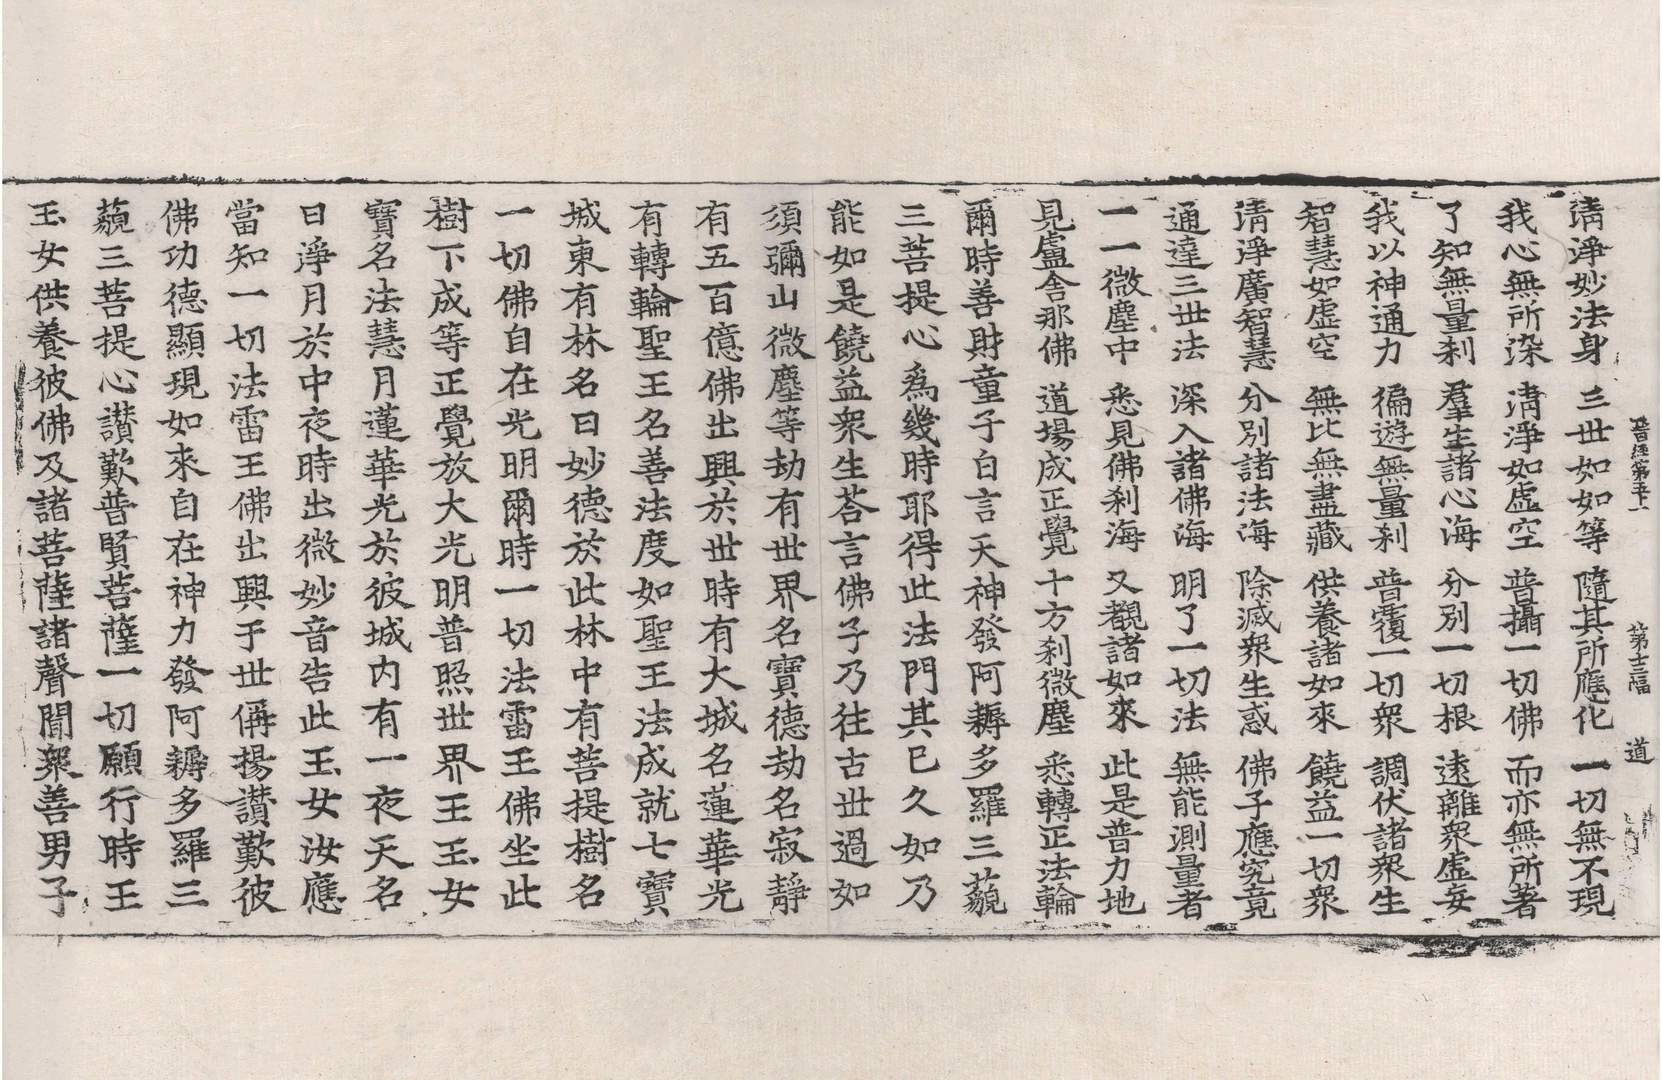 晉經第五十一 第十二幅 道
淸淨妙法身 三世如如等 隨其所應化 一切無不現
我心無所染 淸淨如虛空 普攝一切佛 而亦無所著
了知無量刹 羣生諸心海 分別一切根 遠離衆虛妄
我以神通力 徧遊無量刹 普覆一切衆 調伏諸衆生
智慧如虛空 無比無盡藏 供養諸如來 饒益一切衆
淸淨廣智慧 分別諸法海 除滅衆生惑 佛子應究竟
通達三世法 深入諸佛海 明了一切法 無能測量者
一一微塵中 悉見佛刹海 又覩諸如來 此是普力地
見盧舍那佛 道場成正覺 十方刹微塵 悉轉正法輪
爾時善財童子白言天神發阿耨多羅三藐
三菩提心爲幾時耶得此法門其已久如乃
能如是饒益衆生荅言佛子乃往古世過如
須彌山微塵等劫有世界名寶德劫名寂靜
有五百億佛出興於世時有大城名蓮華光
有轉輪聖王名善法度如聖王法成就七寶
城東有林名曰妙德於此林中有菩提樹名
一切佛自在光明爾時一切法雷王佛坐此
樹下成等正覺放大光明普照世界王玉女
寶名法慧月蓮華光於彼城內有一夜天名
曰淨月於中夜時出微妙音告此玉女汝應
當知一切法雷王佛出興于世偁揚讃歎彼
佛功德顯現如來自在神力發阿耨多羅三
藐三菩提心讃歎普賢菩薩一切願行時王
玉女供養彼佛及諸菩薩諸聲聞衆善男子